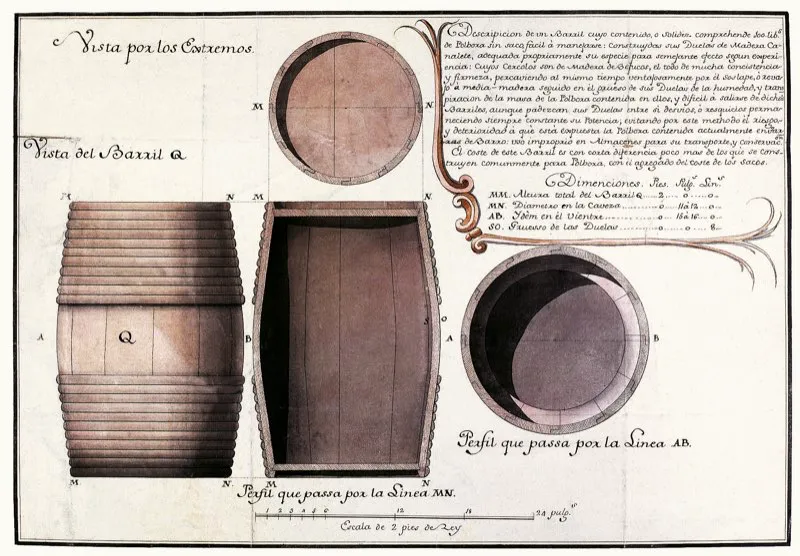 Vista por los Extremos.
Descripicion de un Barril cuyo contenido, o Solidez comprehende 100 lib.ˢ
de Polbora sin saco, facil à manejarse: Construydas sus Duelas de Madera Ca-
nalete, adequada propriamente su especie para semejante efecto segun experi-
encia: Cuyos Cercolos son de Madera de Befucos, el todo de mucha concistencia
y firmeza, percaviendo al mismo tiempo ventajosamente por el
à media-madera seguido en el grueso de sus Duelas de la humedad, y trans
piracion de la masa de la Polbora contenida en ellos, y dificil à salirse de dichos
Barriles, aunque padezcan sus Duelas entre si desnios, ò resquicios perma-
neciendo siempre constante su Potencia; evitando por este methodo el riesgo
y deterioridad à que està expuesta la Polbora contenida actualmente en
de Barro: uso improprio en Almacenes para su transporte, y conservac.ᵒⁿ
El coste de este Barril es con corta diferencia poco mas de los que se cons-
truyen comunmente para Polbora, con el agregado del coste de los sacos.
Dimenciones. Pies. Pulg.ˢ Lin.ˢ
MM. Altura total del Barril Q.... 2..... o..... o...
MN. Diametro en la Caveza........ o..... 11 à 12... o...
AB. Ydem en el Vientre........ o..... 15 à 16... o...
SO. Gruesso de las Duelas........ o..... o..... 8...
Vista del Barril Q
M N
M N
M N
A Q B
S O
A B
M N
M N
Perfil que passa por la Linea AB.
Perfil que passa por la Linea MN.
1 2 3 4 5 6 12 18 24 pulg.ˢ
Escala de 2 pies de Rey